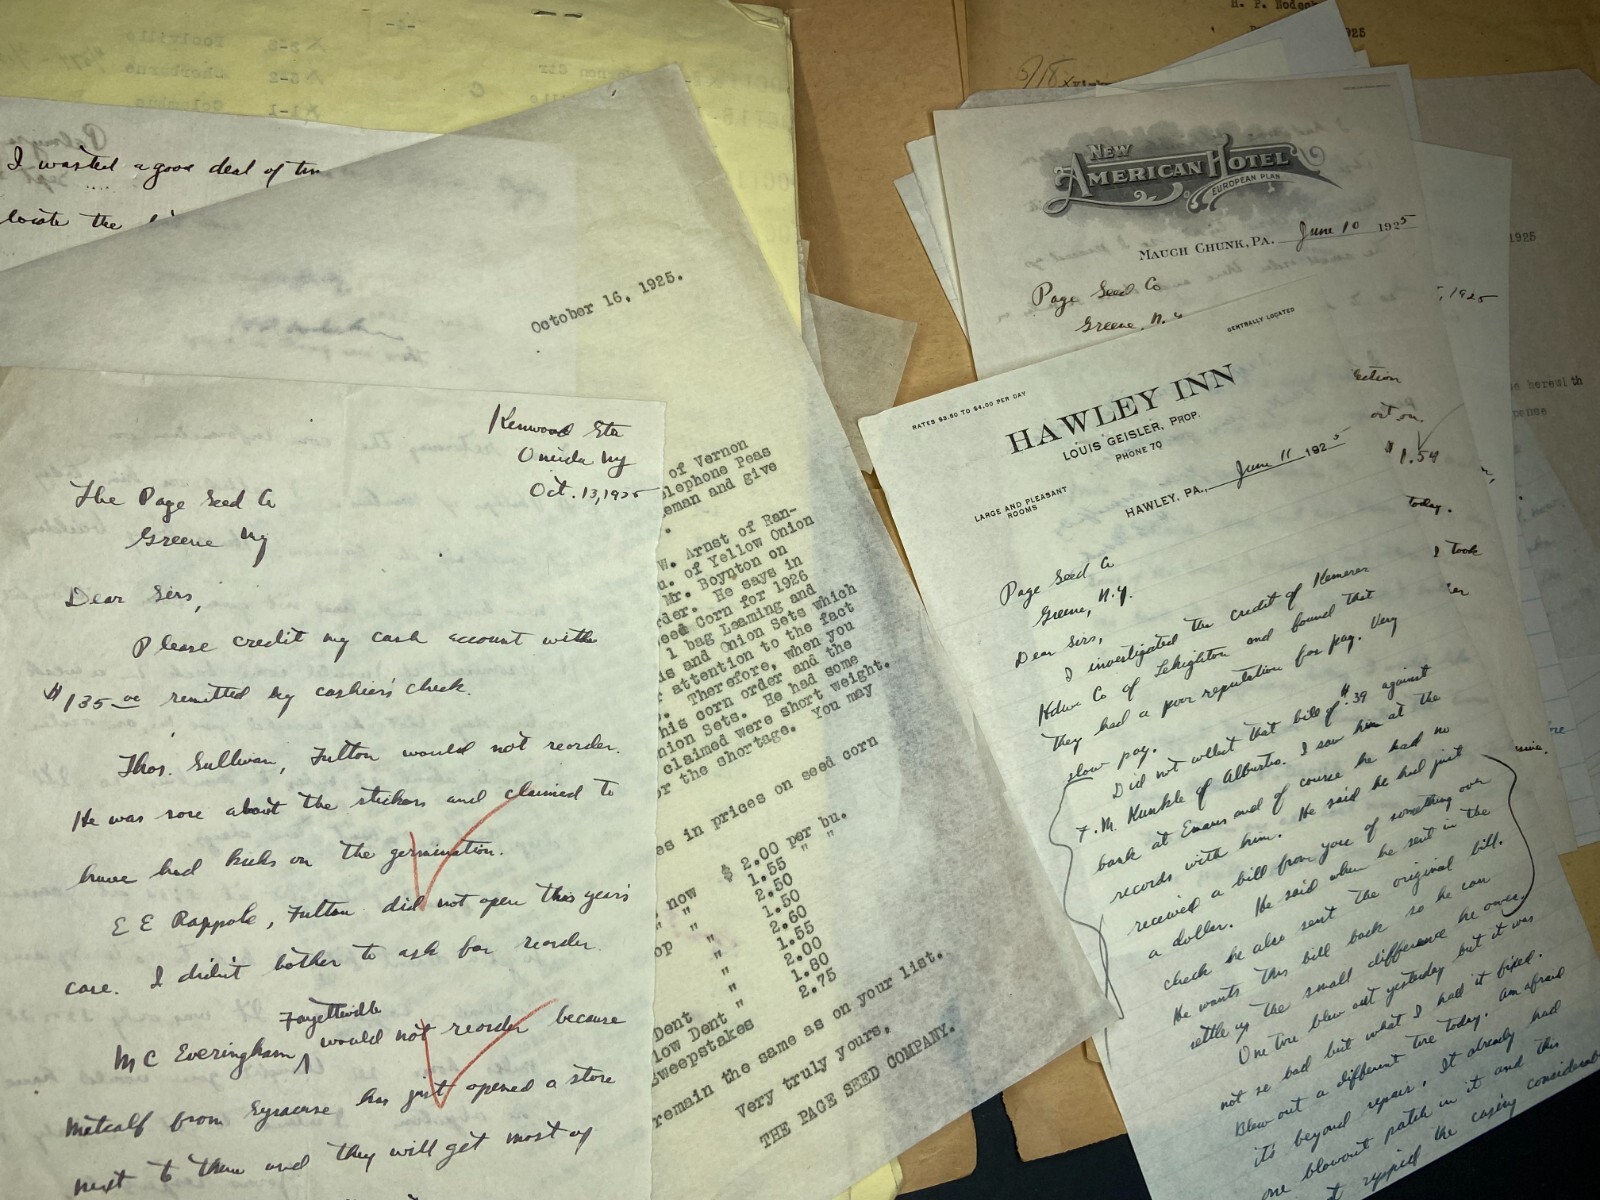 I wasted a good deal of
locate the
October 16, 1925.
Kenwood Sta
Oneida Ny
Oct. 13, 1925
The Page Seed Co
Greene Ny
Dear Sirs,
Please credit my cash account with
$135.00 remitted by cashier's check.
Thos. Sullivan, Fulton would not reorder.
He was sore about the stickers and claimed to
have had kicks on the germination.
E E Rappole, Fulton did not open this year's
case. I didn't bother to ask for reorder.
Fayetteville
M C Everingham ^ would not reorder because
Metcalf from Syracuse has just opened a store
next to them and they will get most of
of Vernon
elephone Peas
eman and give
W. Arnst of Ran-
u. of Yellow Onion
Mr. Boynton on
rder. He says in
eed Corn for 1926
1 bag Leaming and
s and Onion Sets which
r attention to the fact
. Therefore, when you
his corn order and the
nion Sets. He had some
claimed were short weight.
r the shortage. You may
es in prices on seed corn
$ 2.00 per bu.
now 1.55 "
" " 2.50
" 1.50
op " 2.60
" 1.55
" 2.00
Dent " 1.80
low Dent " 2.75
Sweepstakes
remain the same as on your list.
Very truly yours,
THE PAGE SEED COMPANY.
H. P. Hodge
1925
5/18
NEW
AMERICAN HOTEL
EUROPEAN PLAN
MAUCH CHUNK, PA. June 10 1925
Page Seed Co
Greene, N.Y.
1925
, 1925
herewith
CENTRALLY LOCATED
RATES $3.50 TO $4.00 PER DAY
HAWLEY INN
LOUIS GEISLER, PROP.
PHONE 70
LARGE AND PLEASANT
ROOMS
HAWLEY, PA., June 11 1925
ection
ort on.
$1.54
today.
I took
Page Seed Co
Greene, N.Y.
Dear Sirs,
I investigated the credit of Kemerer
Hdwe Co of Lehighton and found that
they had a poor reputation for pay. Very
slow pay.
Did not collect that bill of $.39 against
F. M. Kunkle of Alburtis. I saw him at the
bank at Emaus and of course he had no
records with him. He said he had just
received a bill from you of something over
a dollar. He said when he sent in the
check he also sent the original bill.
He wants this bill back so he can
settle up the small difference he owes.
One tire blew out yesterday but it was
not so bad but what I had it fixed.
Blew out a different tire today. Am afraid
its beyond repair. It already had
one blowout patch in it and this
ripped the casing considerable